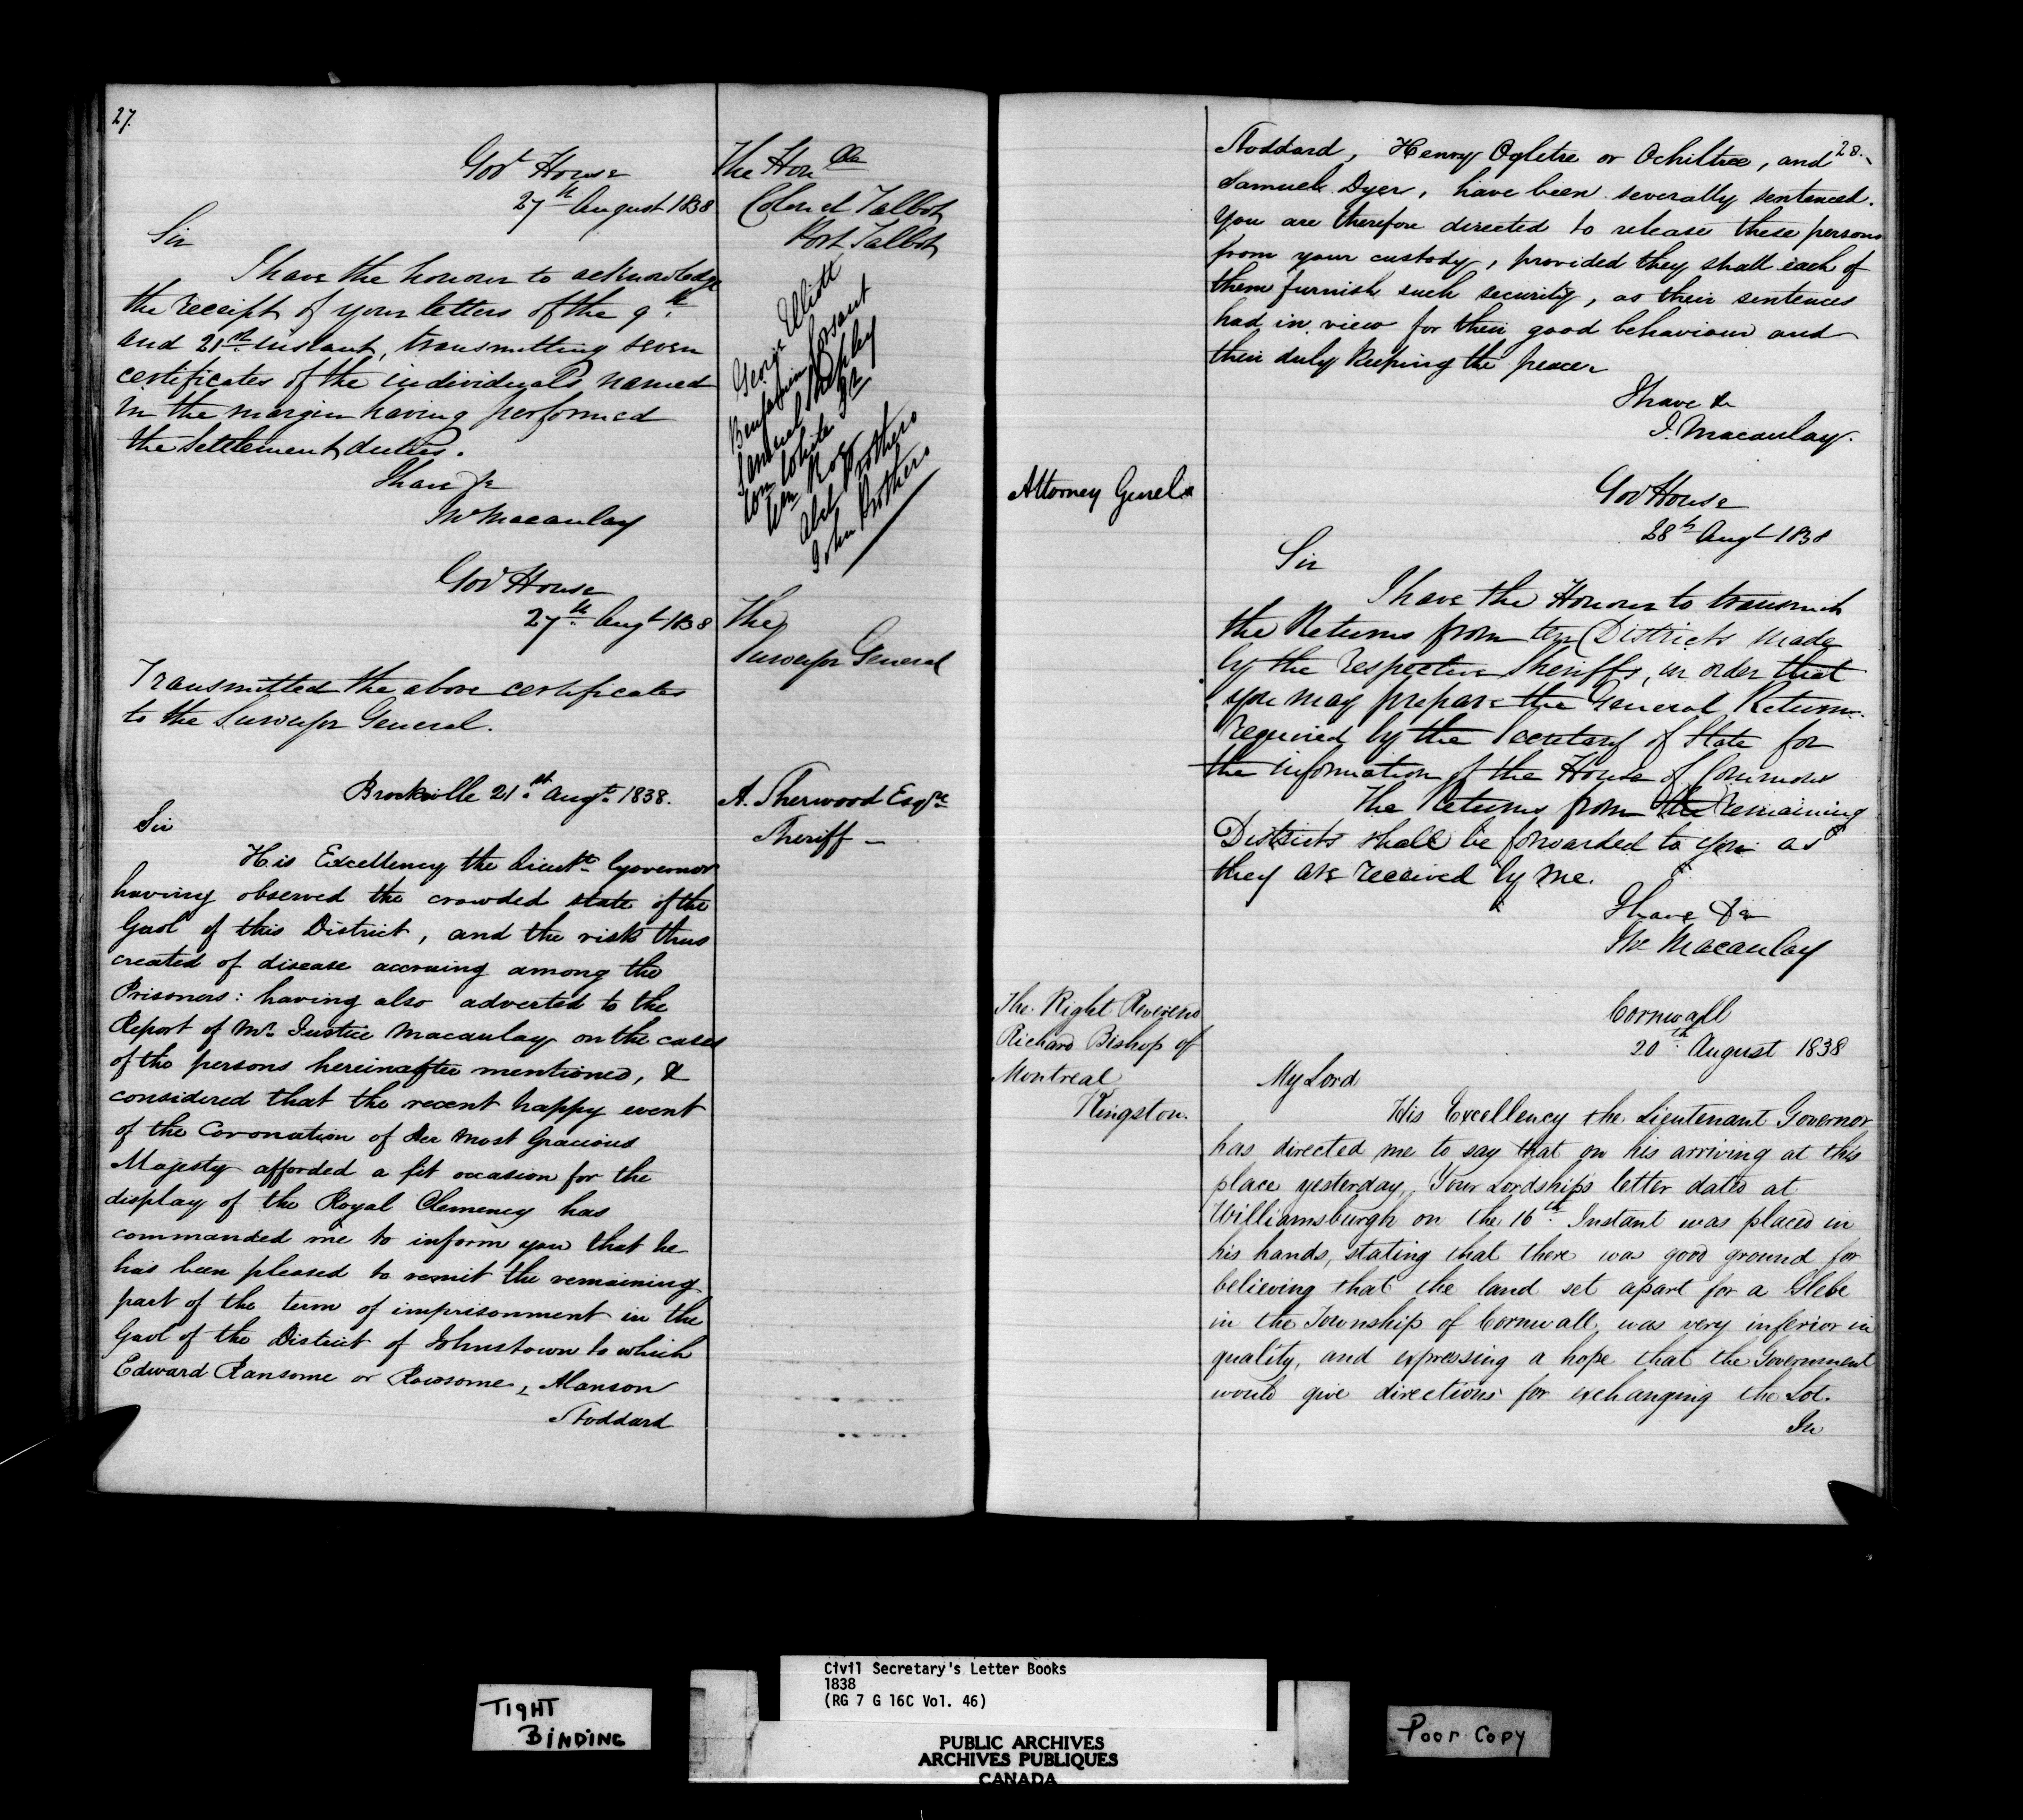 27.
Govt House
27th August 1838
The Honble
Colonel Talbot
Port Talbot
Sir
I have the honour to acknowledge
the receipt of your letters of the 9th
and 21st instant, transmitting seven
certificates of the individuals named
in the margin having performed
the Settlement duties.
I have &c
Jno Macaulay
George Elliott
Benjamin
Samuel Shepley
Wm White Jr
Wm Ross
Abel Brothers
John Brothers
Govt House
27th Augt 1838
The
Surveyor General
Transmitted the above certificates
to the Surveyor General.
Brockville 21st Augt. 1838.
A. Sherwood Esqre
Sheriff —
Sir
His Excellency the Lieutt Governor
having observed the crowded state of the
Gaol of this District, and the risk thus
created of disease accruing among the
Prisoners: having also adverted to the
Report of Mr. Justice Macaulay on the cases
of the persons hereinafter mentioned, &
considered that the recent happy event
of the Coronation of Her Most Gracious
Majesty afforded a fit occasion for the
display of the Royal Clemency has
commanded me to inform you that he
has been pleased to remit the remaining
part of the term of imprisonment in the
Gaol of the District of Johnstown to which
Edward Ransome or Rowsome, Alanson
Stoddard
28.
Stoddard, Henry Ogletre or Ochiltree, and
Samuel Dyer, have been severally sentenced.
You are therefore directed to release these persons
from your custody, provided they shall each of
them furnish such security, as their sentences
had in view for their good behaviour and
their duly keeping the peace.
I have &c
J. Macaulay.
Attorney Genel
Govt House
28th Augt 1838
Sir
I have the Honour to transmit
the Returns from ten Districts made
by the respective Sheriffs, in order that
you may prepare the General Return
required by the Secretary of State for
the information of the House of Commons
The Returns from the remaining
Districts shall be forwarded to you as
they are received by me.
I have &c
Jno Macaulay
The Right Reverend
Richard Bishop of
Montreal
Kingston.
Cornwall
20th August 1838
My Lord
His Excellency the Lieutenant Governor
has directed me to say that on his arriving at this
place yesterday, Your Lordships letter dated at
Williamsburgh on the 16th Instant was placed in
his hands, stating that there was good ground for
believing that the land set apart for a Glebe
in the Township of Cornwall was very inferior in
quality, and expressing a hope that the Government
would give directions for exchanging the Lot.
In
TIGHT
BINDING
Civil Secretary's Letter Books
1838
(RG 7 G 16C Vol. 46)
PUBLIC ARCHIVES
ARCHIVES PUBLIQUES
CANADA
Poor Copy